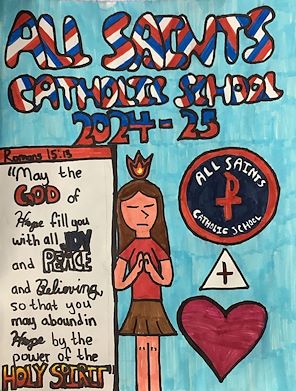 ALL SAINTS
CATHOLIC SCHOOL
2024-25
Romans 15:13
"May the
GOD of
Hope fill you
with all JOY
and PEACE
and Believing
so that you
may abound in
Hope by the
power of the
HOLY SPIRIT"
ALL SAINTS
CATHOLIC SCHOOL